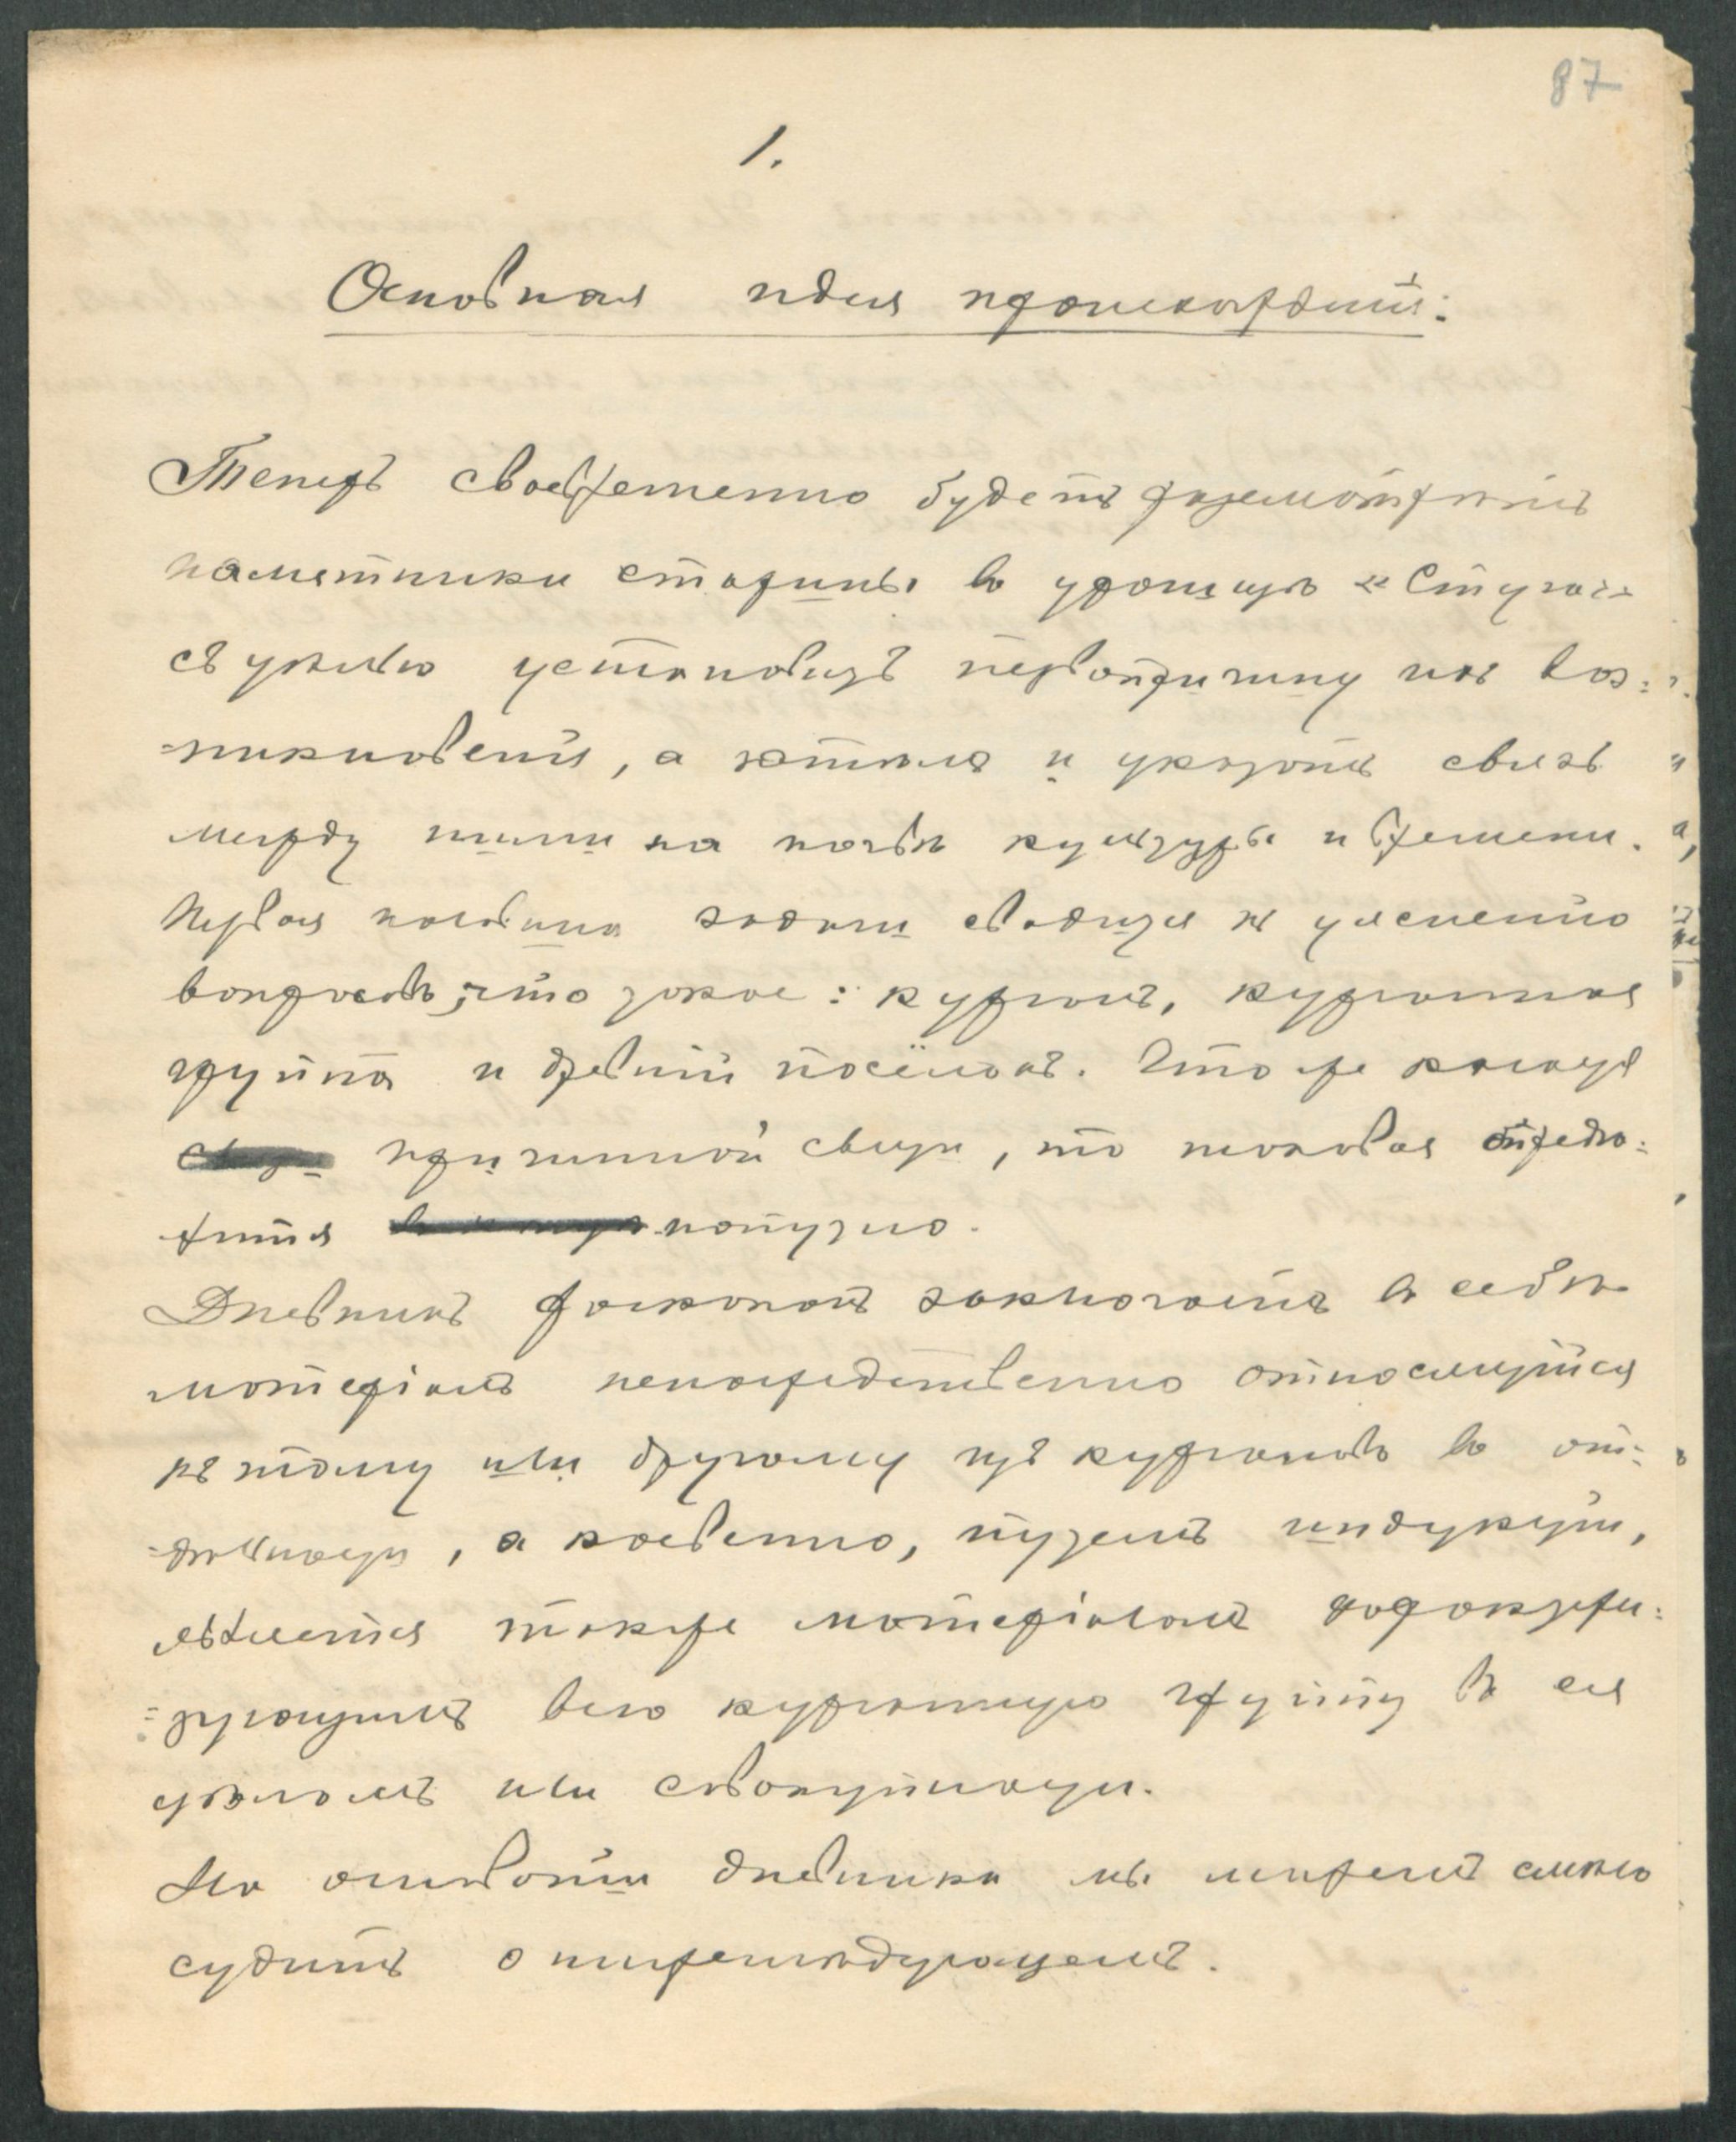 87
1.
Основная идея происхожденія:
Теперь своевременно будетъ разсмотрѣть
памятники старины въ урочищѣ «Стуга»
съ цѣлью установить первопричину ихъ воз=
=никновенія, а затѣмъ и указать связь
между ними на почвѣ культуры и времени.
Первая половина задачи сводится къ уясненію
вопросовъ, что такое: курганъ, курганная
группа и древній посёлокъ. Что же касается
причинной связи, то таковая опредѣ=
лится попутно.
Дневникъ раскопокъ заключаетъ въ себѣ
матеріалъ непосредственно относящійся
къ тому или другому изъ кургановъ въ от=
=дѣльности, а косвенно, путемъ индукціи,
является также матеріаломъ характери=
=зующимъ всю курганную группу въ ея
цѣломъ или совокупности.
На основаніи дневника мы можемъ смѣло
судить о нижеслѣдующемъ.